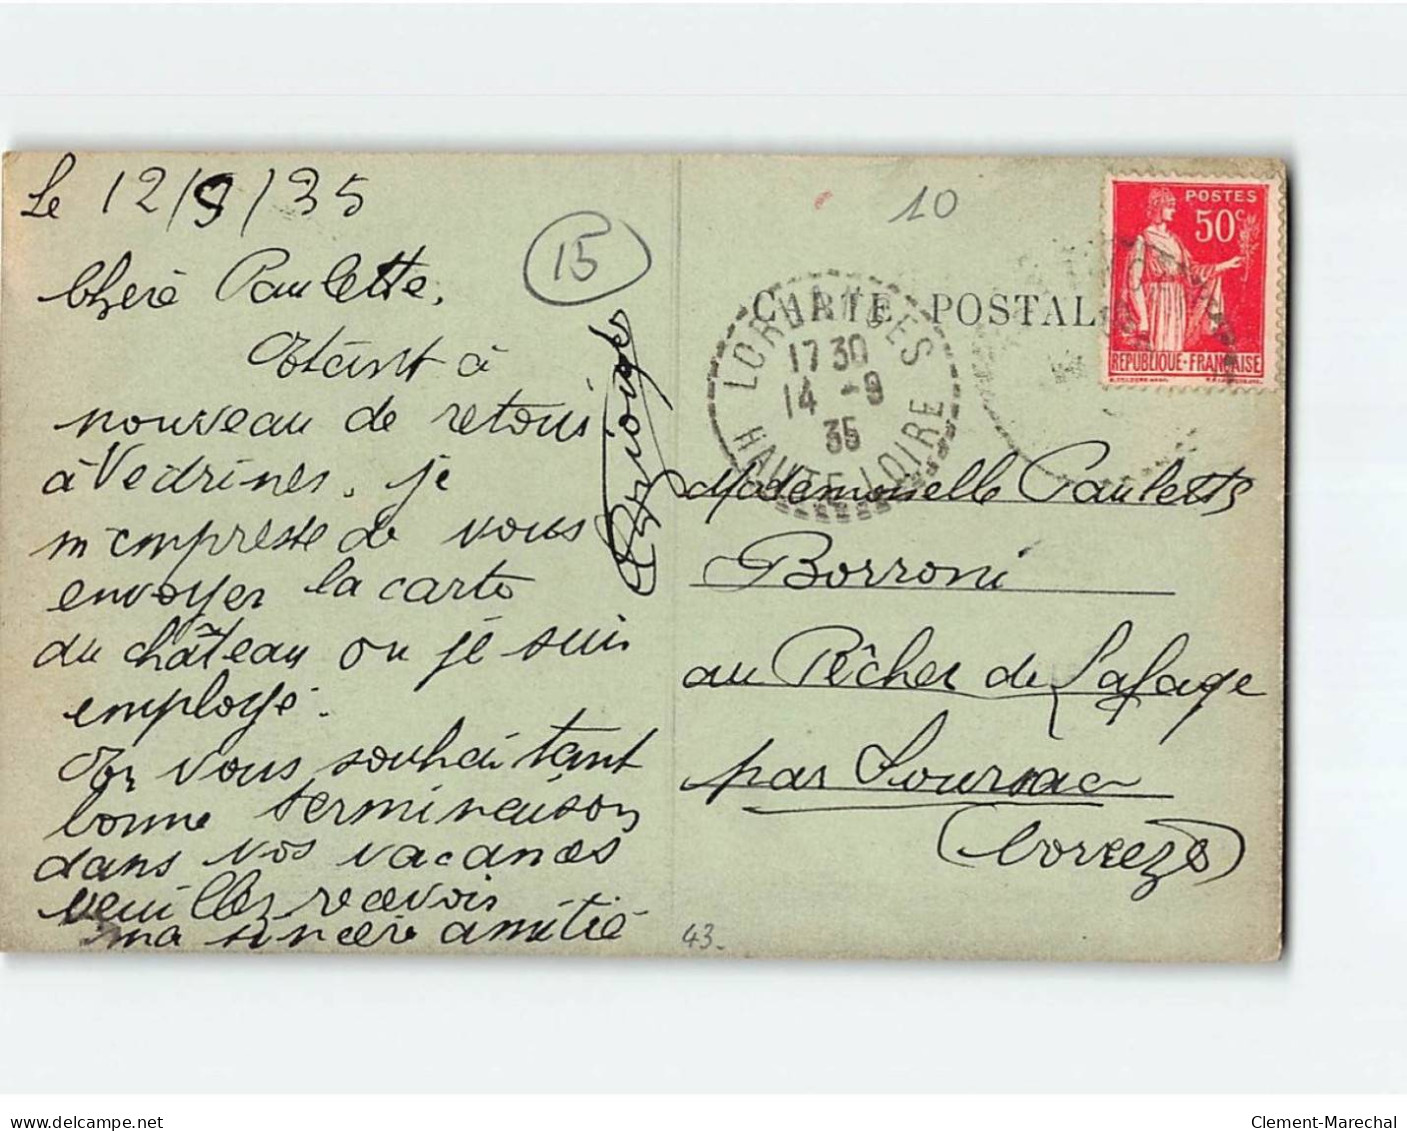 Le 12/9/35
Chère Paulette,
Etant à
nouveau de retour
à Vedrines, je
m'empresse de vous
envoyer la carte
du château ou je suis
employé.
En vous souhaitant
bonne terminaison
dans vos vacances
veuillez recevoir
ma sincère amitié
15
10
CARTE POSTALE
LORLANGES
17 30
14 -9
35
HAUTE-LOIRE
POSTES
50c
REPUBLIQUE-FRANÇAISE
Mademoiselle Paulette
Borroni
au Pêcher de Lafage
par Sournac
(Corrèze)
43.
delcampe.net
Clement-Marechal